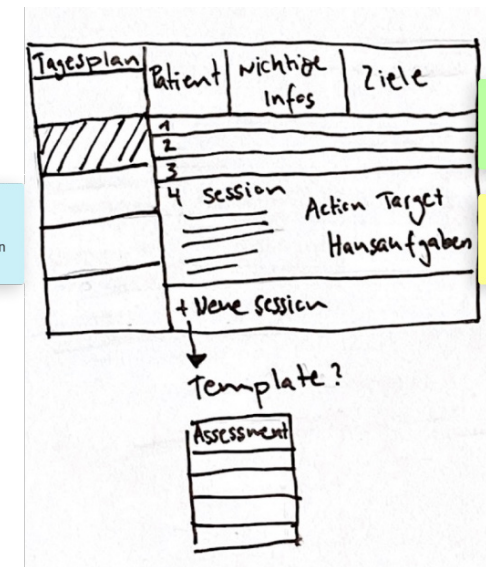 Tagesplan
Patient
Wichtige
Infos
Ziele
1
2
3
4 Session
Action Target
Hausaufgaben
+ Neue Session
Template?
Assessment
n